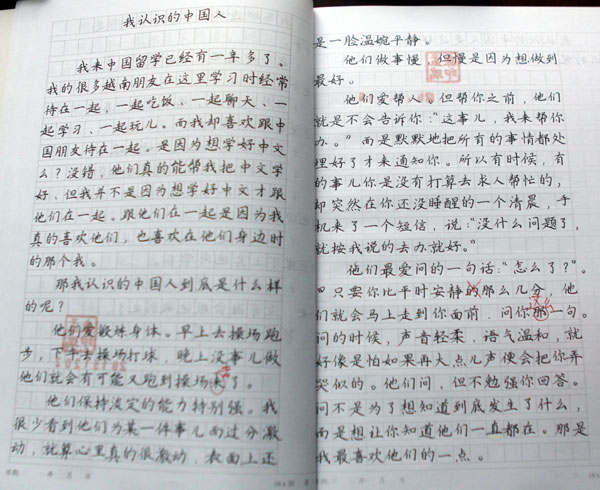 我认识的中国人
我来中国留学已经有一年多了。
我的很多越南朋友在这里学习时经常
待在一起、一起吃饭、一起聊天、一
起学习、一起玩儿。而我却喜欢跟中
国朋友待在一起。是因为想学好中文
么？没错，他们真的能帮我把中文学
好，但我并不是因为想学好中文才跟
他们在一起。跟他们在一起是因为我
真的喜欢他们，也喜欢在他们身边时
的那个我。
那我认识的中国人到底是什么样
的呢？
他们爱锻炼身体。早上去操场跑
步，下午去操场打球，晚上没事儿做
他们就会有可能又跑到操场来了。
他们保持淡定的能力特别强。我
很少看到他们为某一件事儿而过分激
动，就算心里真的很激动，表面上还
是一脸温婉平静。
他们做事慢，但慢是因为想做到
最好。
他们爱帮人。但帮你之前，他们
就是不会告诉你：“这事儿，我来帮你
办。”而是默默地把所有的事情都处
理好了才来通知你。所以有时候，有
的事儿你是没有打算去求人帮忙的，
却突然在你还没睡醒的一个清晨，手
机来了一个短信，说：“没什么问题了，
就按我说的去办就好。”
他们最爱问的一句话：“怎么了？”。
只要你比平时安静的那么几分，他
们就会马上走到你面前，问你那一句。
问的时候，声音轻柔、语气温和，就
好像是怕如果再大点儿声便会把你弄
哭似的。他们问，但不勉强你回答。
问不是为了想知道到底发生了什么，
而是想让你知道他们一直都在。那是
我最喜欢他们的一点。